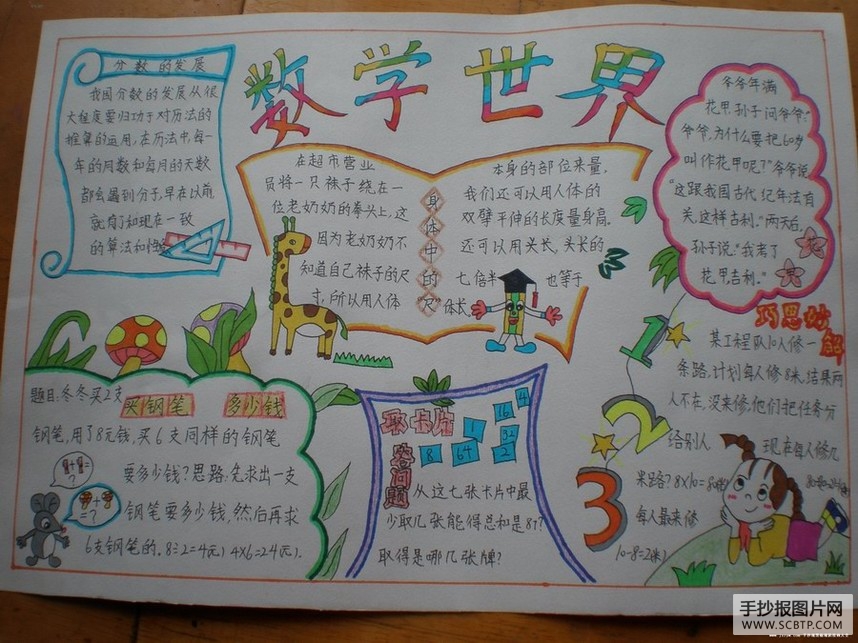 数学世界
分数的发展
我国分数的发展从很
大程度要归功于对历法的
推算的运用,在历法中,每一
年的周数和每月的天数
都会遇到分子,早在以前
就有了和现在一致
的算法和性
在超市营业
员将一只袜子绕在一
位老奶奶的拳头上,这
因为老奶奶不
知道自己袜子的尺
寸,所以用人体
身体中的"尺"
本身的部位来量,
我们还可以用人体的
双臂平伸的长度量身高。
还可以用头长,头长的
七倍半 也等于
体长
爷爷年满
花甲,孙子问爷爷:"
爷爷,为什么要把60岁
叫作花甲呢?"爷爷说
"这跟我国古代纪年法有
关,这样吉利。"两天后,
孙子说:"我考了
花甲,吉利。"
花甲
题目:冬冬买2支
买钢笔 多少钱
钢笔,用了8元钱,买6支同样的钢笔
要多少钱?思路:先求出一支
钢笔要多少钱,然后再求
6支钢笔的。8÷2=4(元) 4×6=24(元)
=?
=?
取卡片
答问题
1 16 4
8 64 32 2
从这七张卡片中最
少取几张能得总和是87?
取得是哪几张牌?
巧思妙解
1
2
3
某工程队10人修一
条路,计划每人修8米,结果两
人不在,没来修,他们把任务分
给别人 现在每人修几
米路?8×10=80(米)
每人最来修
10-8=2(米)
手抄报图片网
WWW.SCBTP.COM